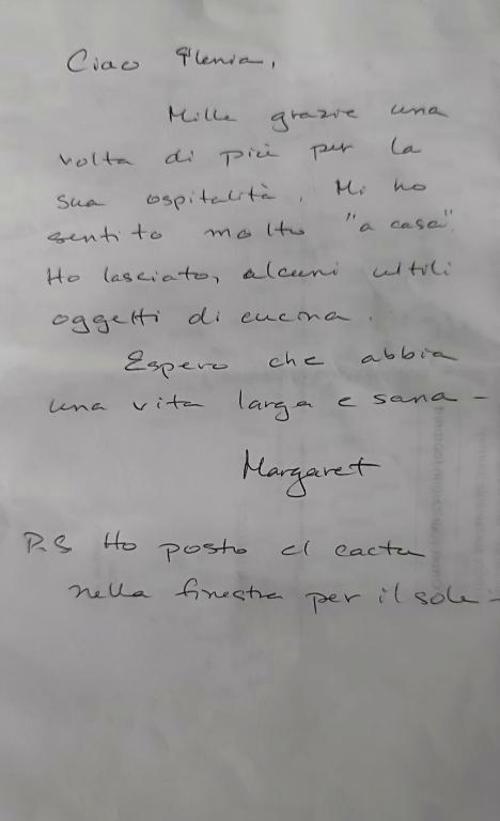 Ciao Plenia,
Mille grazie una
volta di più per la
sua ospitalità. Mi ho
sentito molto "a casa".
Ho lasciato, alcuni ultili
oggetti di cucina.
Espero che abbia
una vita larga e sana -
Margaret
P.S Ho posto el cacta
nella finestra per il sole -